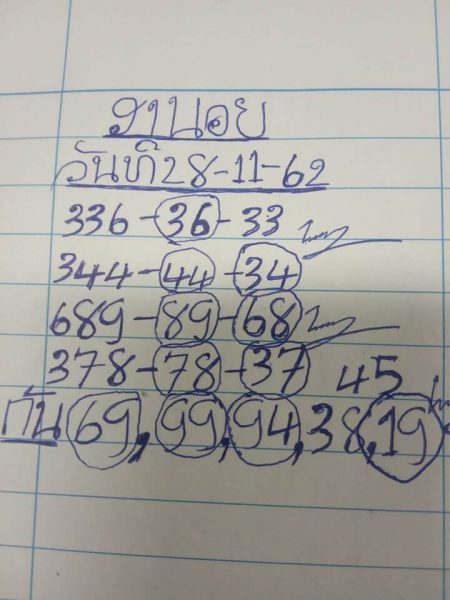 ฮานอย
วันที่28-11-62
336-36-33
344-44-34
689-89-68
378-78-37 45
กัน69,99,94,38,19